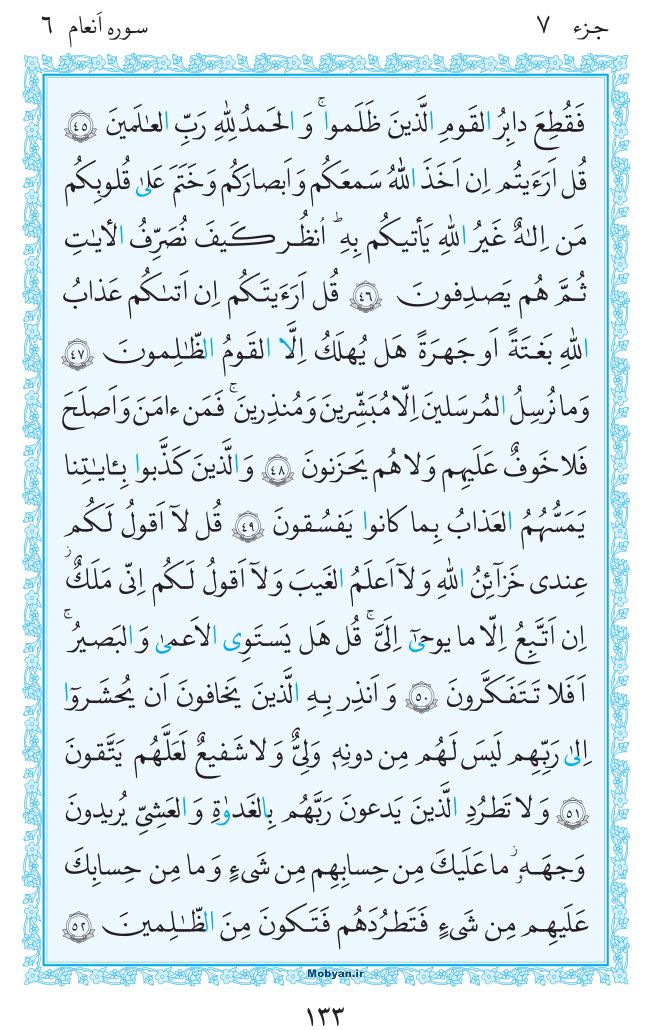 جزء ٧
سوره اَنعام ٦
فَقُطِعَ دابِرُ القَومِ الَّذينَ ظَلَموا ۚ وَ الحَمدُ لِلّٰهِ رَبِّ العالَمينَ ﴿٤٥﴾
قُل اَرَءَيتُم اِن اَخَذَ اللّٰهُ سَمعَكُم وَ اَبصارَكُم وَ خَتَمَ عَلىٰ قُلوبِكُم
مَن اِلـٰهٌ غَيرُ اللّٰهِ يَأتيكُم بِهِ ۗ اُنظُر كَيفَ نُصَرِّفُ الأياتِ
ثُمَّ هُم يَصدِفونَ ﴿٤٦﴾ قُل اَرَءَيتَكُم اِن اَتىٰكُم عَذابُ
اللّٰهِ بَغتَةً اَو جَهرَةً هَل يُهلَكُ اِلَّا القَومُ الظّٰلِمونَ ﴿٤٧﴾
وَ ما نُرسِلُ المُرسَلينَ اِلّا مُبَشِّرينَ وَ مُنذِرينَ ۚ فَمَن ءامَنَ وَ اَصلَحَ
فَلا خَوفٌ عَلَيهِم وَ لا هُم يَحزَنونَ ﴿٤٨﴾ وَ الَّذينَ كَذَّبوا بِـٔاياتِنا
يَمَسُّهُمُ العَذابُ بِما كانوا يَفسُقونَ ﴿٤٩﴾ قُل لآ اَقولُ لَكُم
عِندى خَزآئِنُ اللّٰهِ وَ لآ اَعلَمُ الغَيبَ وَ لآ اَقولُ لَكُم اِنّى مَلَكٌ ۖ
اِن اَتَّبِعُ اِلّا ما يوحىٰٓ اِلَىَّ ۚ قُل هَل يَستَوِى الاَعمىٰ وَ البَصيرُ ۚ
اَفَلا تَتَفَكَّرونَ ﴿٥٠﴾ وَ اَنذِر بِهِ الَّذينَ يَخافونَ اَن يُحشَروٓا
اِلىٰ رَبِّهِم لَيسَ لَهُم مِن دونِهٖ وَلِىٌّ وَ لا شَفيعٌ لَعَلَّهُم يَتَّقونَ
﴿٥١﴾ وَ لا تَطرُدِ الَّذينَ يَدعونَ رَبَّهُم بِالغَدوٰةِ وَ العَشِىِّ يُريدونَ
وَجهَهٗ ۖ ما عَلَيكَ مِن حِسابِهِم مِن شَىءٍ وَ ما مِن حِسابِكَ
عَلَيهِم مِن شَىءٍ فَتَطرُدَهُم فَتَكونَ مِنَ الظّٰلِمينَ ﴿٥٢﴾
Mobyan.ir
١٣٣